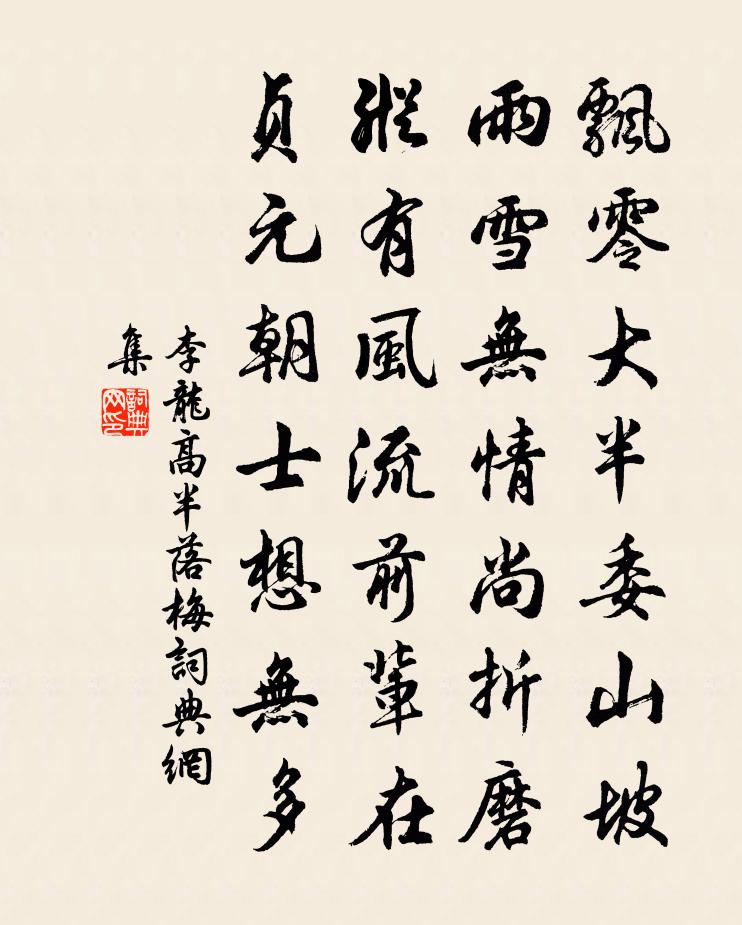 飄零大半委山坡
雨雪無情尚折磨
縱有風流前輩在
貞元朝士想無多
李龍高半落梅詞典網
集
詞典網印